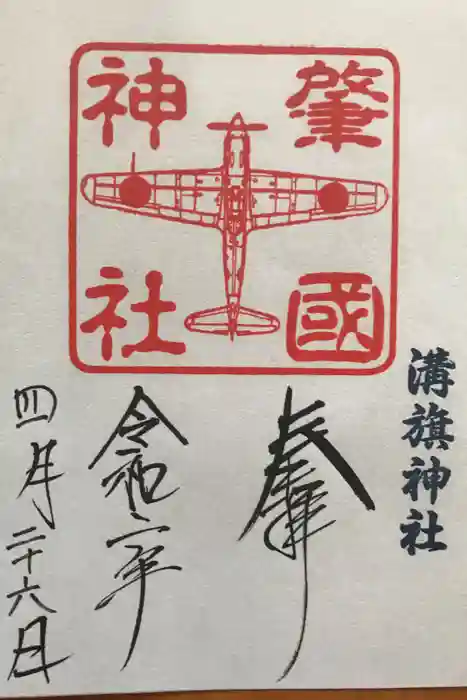 肇國
神社
溝旗神社
奉拝
令和二年
四月二十六日